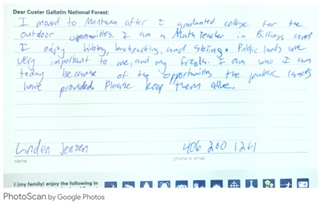 Dear Custer Gallatin National Forest:
I moved to Montana after I graduated college for the
outdoor opportunities. I am a Math Teacher in Billings and
I enjoy hiking, backpacking, and skiing. Public lands are
very important to me, and my friends. I am who I am
today because of the opportunities the public lands
have provided. Please keep them alive.
Linden Jensen
406 200 1261
name
phone or email
I (my family) enjoy the following in
PhotoScan by Google Photos